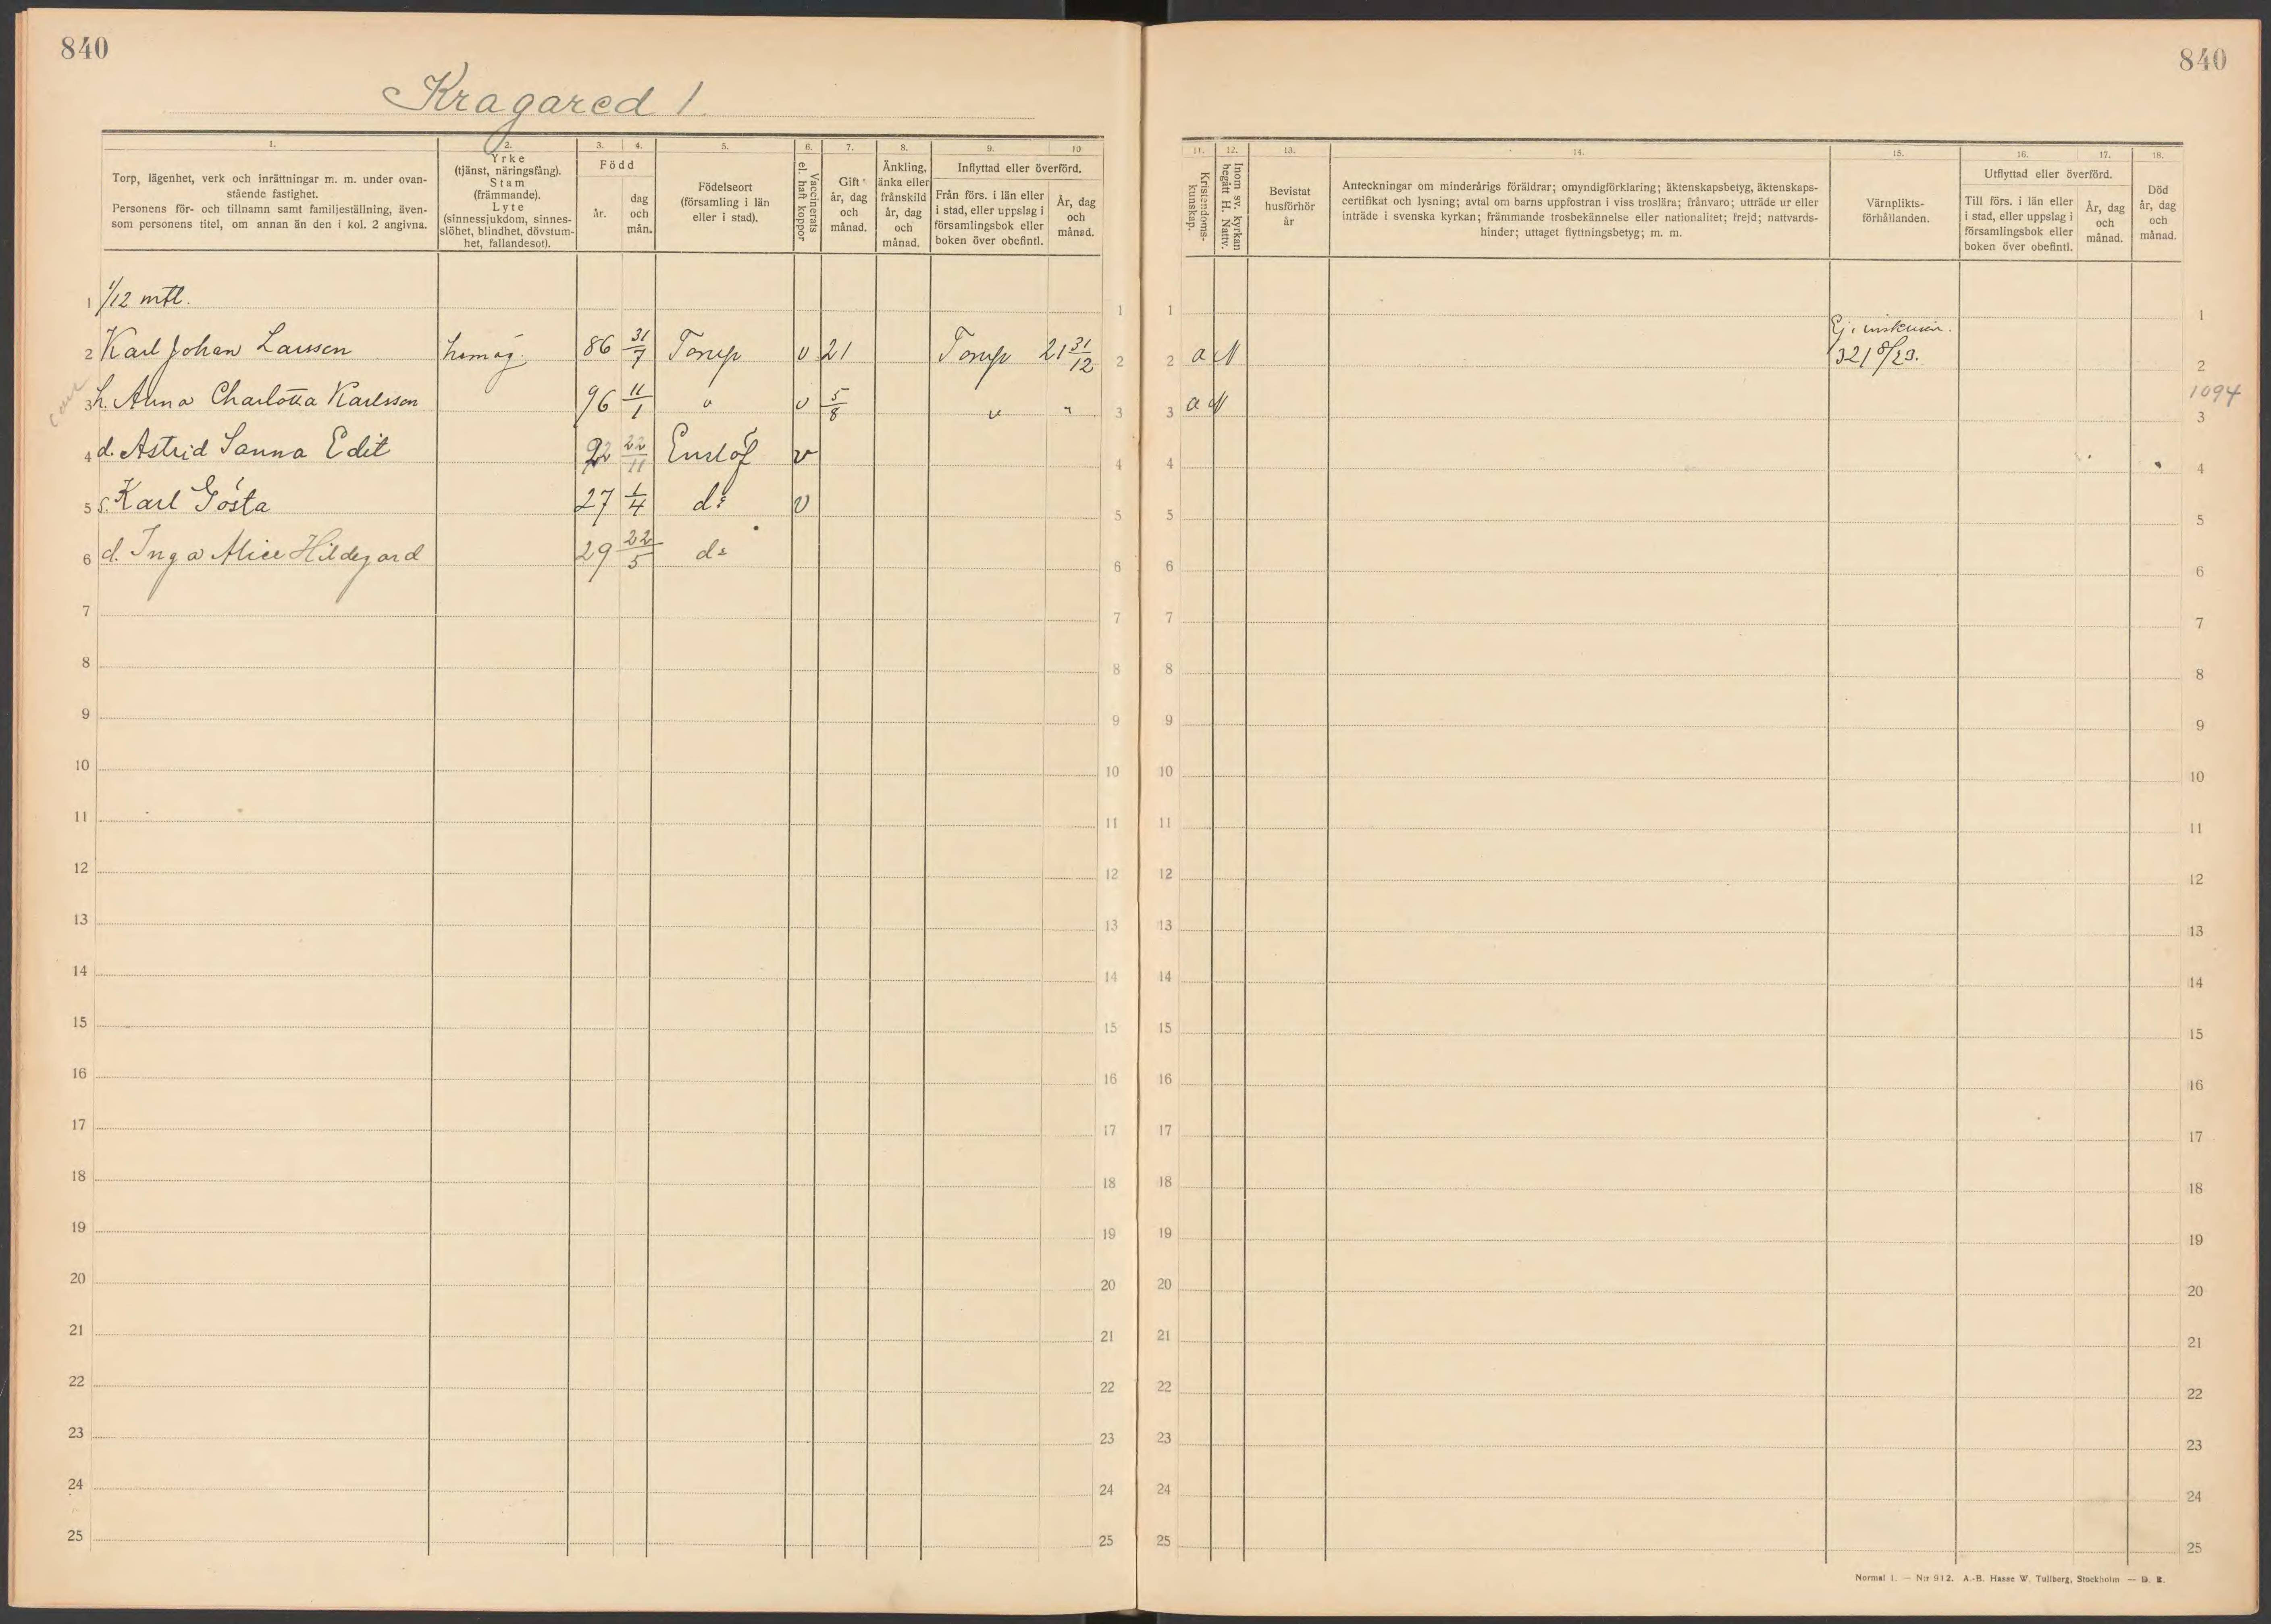 840
Kragared 1.
1. 2. 3. 4. 5. 6. 7. 8. 9. 10
Torp, lägenhet, verk och inrättningar m. m. under ovan-
stående fastighet.
Personens för- och tillnamn samt familjeställning, även-
som personens titel, om annan än den i kol. 2 angivna.
Yrke
(tjänst, näringsfång).
Stam
(främmande).
Lyte
(sinnessjukdom, sinnes-
slöhet, blindhet, dövstum-
het, fallandesot).
Född
år.
dag
och
mån.
Födelseort
(församling i län
eller i stad).
Vaccinerats
el. haft koppor
Gift
år, dag
och
månad.
Änkling,
änka eller
frånskild
år, dag
och
månad.
Inflyttad eller överförd.
Från förs. i län eller
i stad, eller uppslag i
församlingsbok eller
boken över obefintl.
År, dag
och
månad.
1 1/12 mtl. 1
2 Karl Johan Larsson hemäg. 86 31/7 Torup v 21 Torup 21 31/12 2
3 h. Anna Charlotta Karlsson 96 11/1 " v 5/8 " " 3
4 d. Astrid Sanna Edit 22 22/11 Enslöf v 4
5 s. Karl Gösta 27 1/4 d:o v 5
6 d. Inga Alice Hildegard 29 22/5 d:o 6
7 7
8 8
9 9
10 10
11 11
12 12
13 13
14 14
15 15
16 16
17 17
18 18
19 19
20 20
21 21
22 22
23 23
24 24
25 25
840
11. 12. 13. 14. 15. 16. 17. 18.
Kristendoms-
kunskap.
Inom sv. kyrkan
begått H. Nattv.
Bevistat
husförhör
år
Anteckningar om minderårigs föräldrar; omyndigförklaring; äktenskapsbetyg, äktenskaps-
certifikat och lysning; avtal om barns uppfostran i viss troslära; frånvaro; utträde ur eller
inträde i svenska kyrkan; främmande trosbekännelse eller nationalitet; frejd; nattvards-
hinder; uttaget flyttningsbetyg; m. m.
Värnplikts-
förhållanden.
Utflyttad eller överförd.
Till förs. i län eller
i stad, eller uppslag i
församlingsbok eller
boken över obefintl.
År, dag
och
månad.
Död
år, dag
och
månad.
1 1
Ej i
2 a N 321 8/23. 2
1094
3 a N 3
4 4
5 5
6 6
7 7
8 8
9 9
10 10
11 11
12 12
13 13
14 14
15 15
16 16
17 17
18 18
19 19
20 20
21 21
22 22
23 23
24 24
25 25
Normal 1. — N:r 912. A.-B. Hasse W. Tullberg, Stockholm